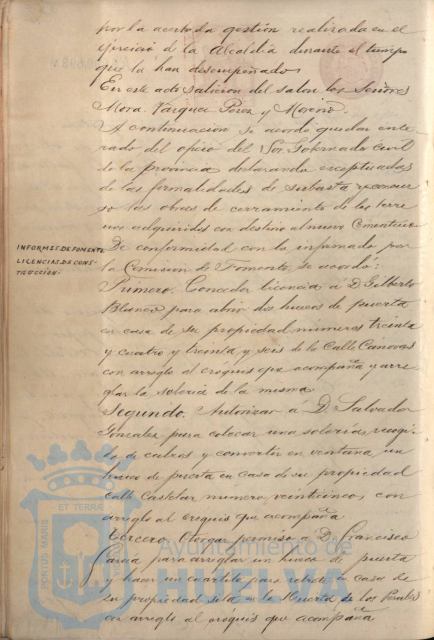 por la acertada gestión realizada en el
ejercicio de la Alcaldía durante el tiempo
que la han desempeñado.
En este acto salieron del salon los Señores
Mora, Vazquez Perez y Moreno.
A continuacion se acordó quedar ente
rado del oficio del Sor. Gobernador Civil
de la provincia declarando exceptuadas
de las formalidades de subasta y concur
so las obras de cerramiento de los terre
nos adquiridos con destino al nuevo Cementerio
INFORMES DE FOMENTO
LICENCIAS DE CONS-
TRUCCIÓN.
De conformidad con lo informado por
la Comision de Fomento, se acordó:
Primero. Conceder licencia á D. Gilberto
Blanco para abrir dos huecos de puerta
en casa de su propiedad numeros treinta
y cuatro y treinta y seis de la Calle Cánovas
con arreglo al croquis que acompaña y arre
glar la soleria de la misma
Segundo. Autorizar á D. Salvador
Gonzalez para colocar una solería, recogi
da de cubos y convertir en ventana un
hueco de puerta en casa de su propiedad
Calle Castelar numero veinticinco, con
arreglo al croquis que acompaña
Tercero. Otorgar permiso á D. Francisco
García para arreglar un hueco de puerta
y hacer un cuartito para retrete en casa de
su propiedad sita en la Huerta de los Perales
con arreglo al cróquis que acompaña
PORTUS MARIS
ET TERRÆ
Ayuntamiento de